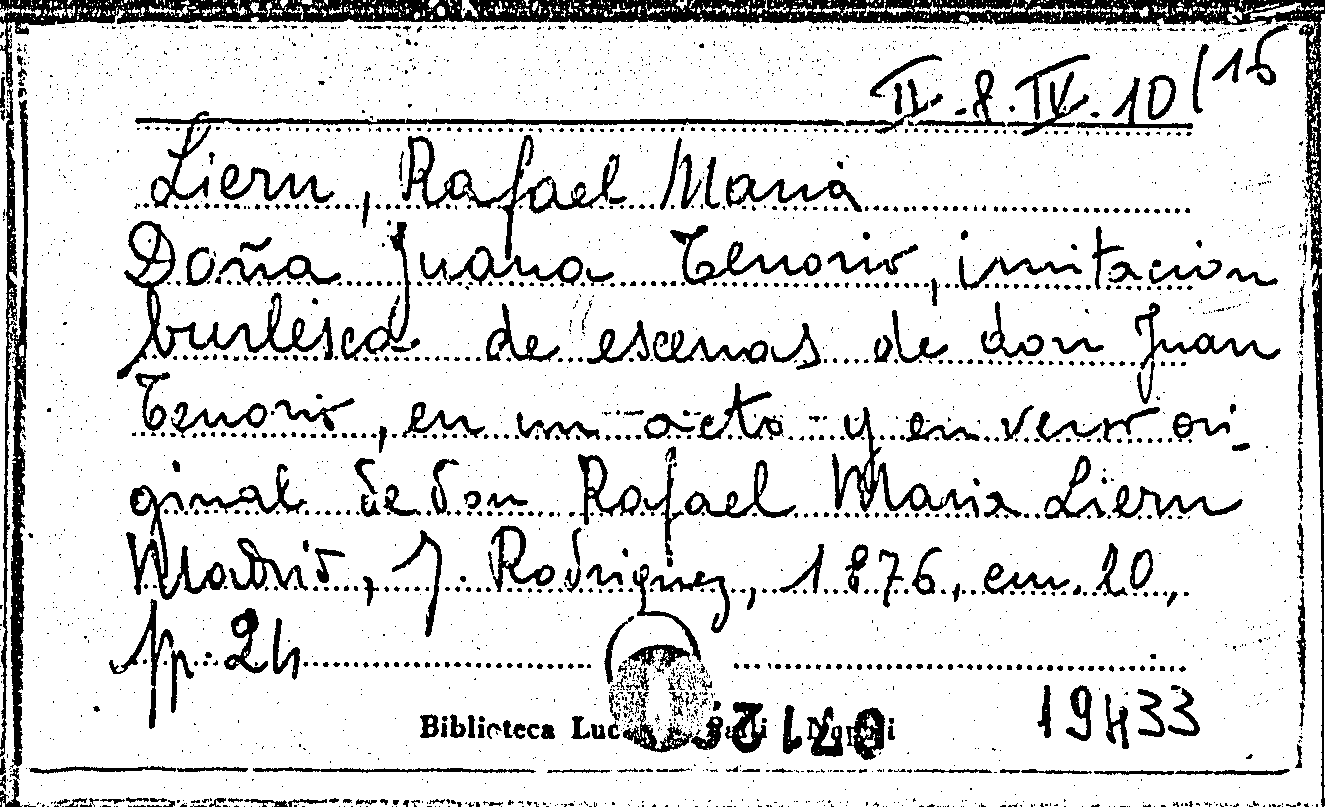 II.8.IV.10/15
Liern, Rafael Maria
Doña Juana Tenorio, imitacion
burlesca de escenas de don Juan
Tenorio, en un acto y en verso ori-
ginal de don Rafael Maria Liern
Madrid, J. Rodriguez, 1876, cm. 20,
pp. 24
Biblioteca
19433